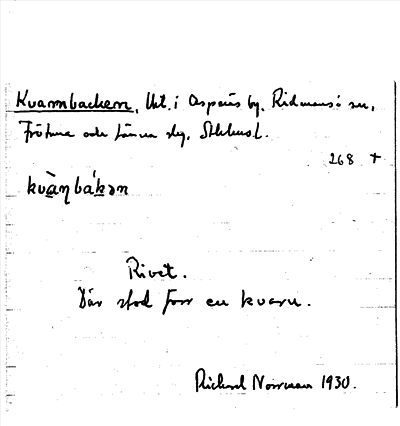 Kvarnbacken, lht. i Aspnäs by, Ridmansö sn,
Frötuna och Länna slg. Sthlms l.
268 +
kvàṇbákən
Rivet.
Där stod förr en kvarn.
Richard Norrman 1930.